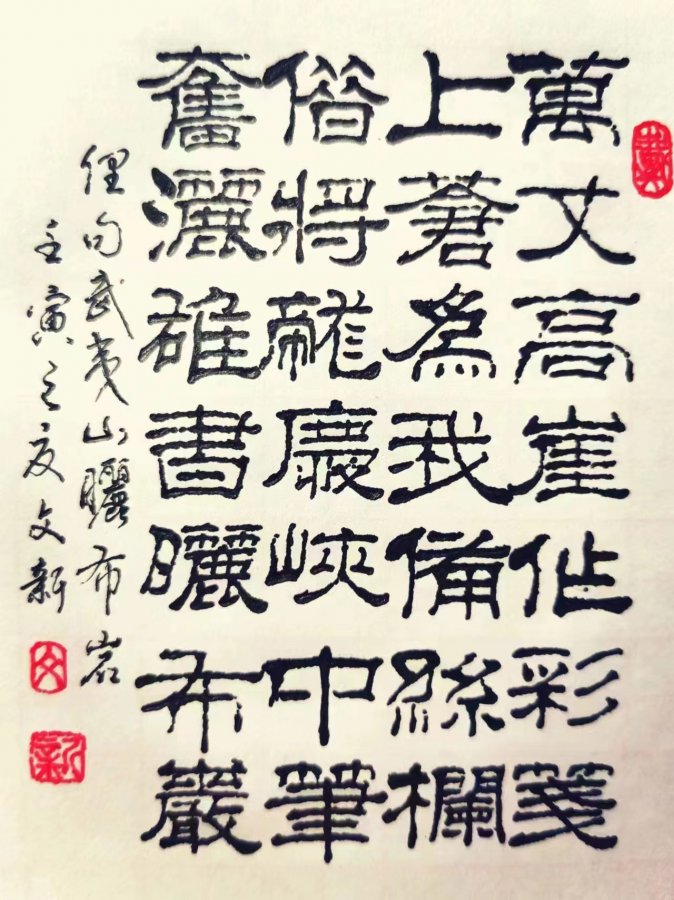 萬丈高崖作彩箋
上蒼為我備絲欄
借將龍峽中筆
奮灑雄書曬布巖
俚句武夷山曬布岩
壬寅之夏文新
文
新